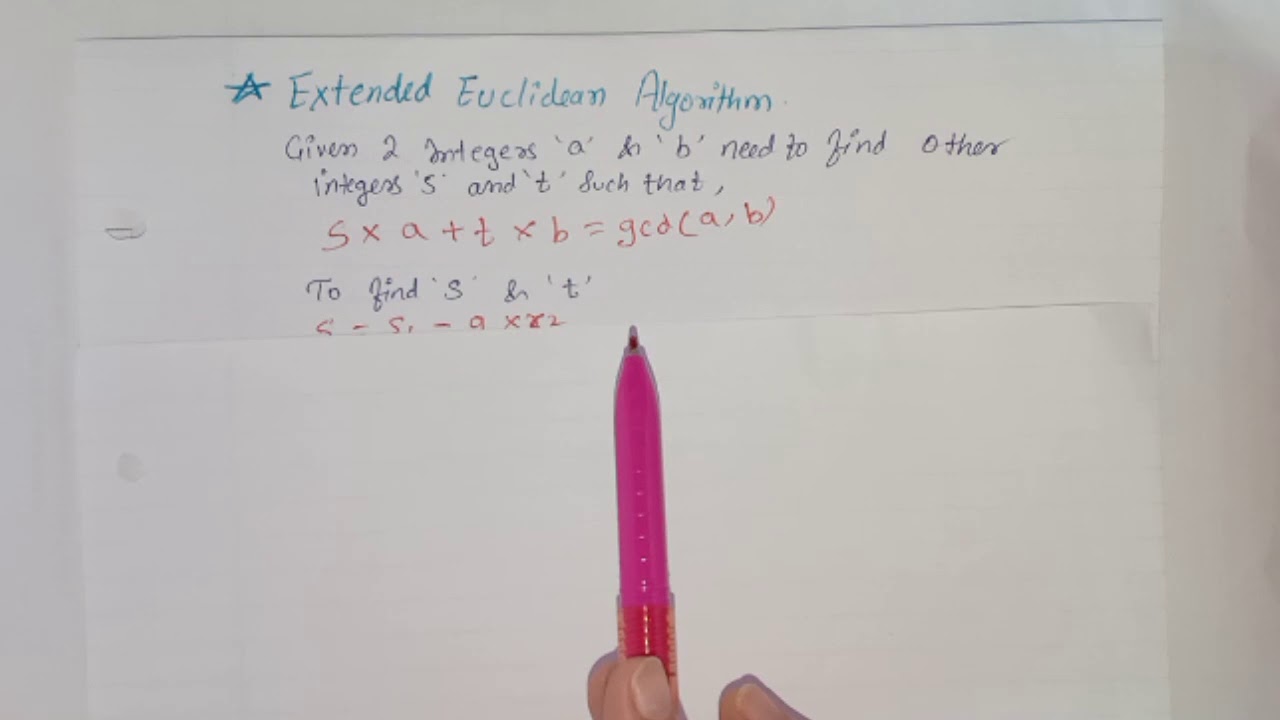 ☆ Extended Euclidean Algorithm.
Given 2 Integers 'a' & 'b' need to find other
integers 's' and 't' such that,
s × a + t × b = gcd(a, b)
To find 's' & 't'
s = s₁ - q × r2